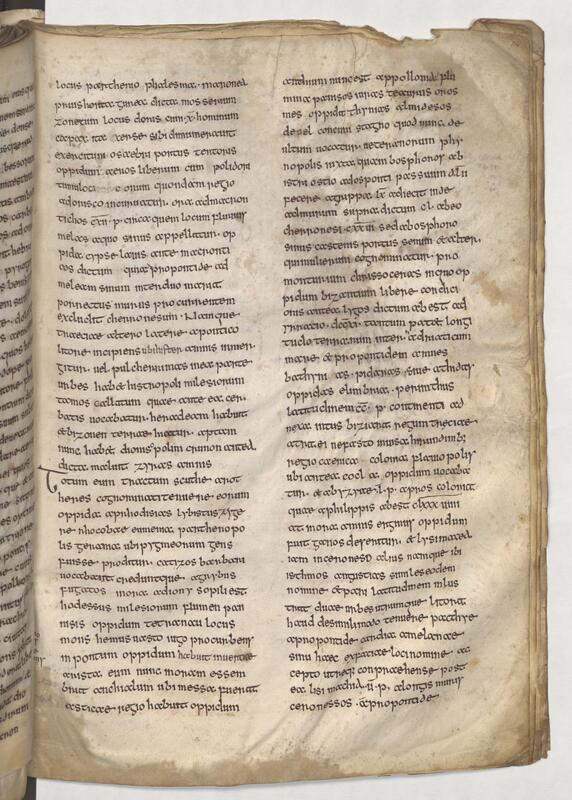 locus parthenio phalesina maronea
prius hortagurea dicta mos serrium
zonetum locus doris cum x hominum
capax ita xerse sibi dinumerauit
exercitum os aebri portus tentoris
oppidum aenos liberum cum polidori
tumulo ciconum quondam regio
a dorisco incuruatur ora ad macron
tichos cxii p circa quem locum fluuius
melas a quo sinus appellatur op
pida cypsela bisante macronti
cos dictum qua a propontide ad
melean sinum interduo maria
porrectus murus procurrentem
excludit cherronesum Namque
traciae altero latere a pontico
litore incipiens ubi hister amnis mer
gitur uel pulcherrimas in ea parte
urbes habet histropoli milesiorum
tamos callatum quae ante ea cer
batis uocabatur heracleam habuit
et bizonen terrae hiatu raptam
nunc habet dionispolim crunon antea
dicta adluit zyras amnis
Totum eum tractum scuthe arot
heres cognominati tenuere eorum
oppida aprhodisias lybistus zyge
re rhocobae eumenia parthenopo
lis gerania ubi pygmeorum gens
fuisse proditur catizos barbari
uocabant creduntque agruibus
fugatos in ora a dionysopili est
hodessus milesiorum flumen pan
nisis oppidum tetranaulocus
mons hemus uasto iugo procumbens
in pontum oppidum habuit in uertice
aristaeum nunc in ora messem
bria anchialum ubi messa fuerat
asticae regio habuit oppidum
antium nunc est appollonia flu
mina panisos iuras tearus oros
mes oppida thynias almidesos
deuel concum stagno quod nunc de
ultum uocatur ueteranorum phi
nopolis iuxta quam bosphoros ab
istri ostio ad os ponti passuum dlii
fecere agrippa lx adiecit inde
ad murum supra dictum cl ab eo
cherronesi cxxui sed a bosphoro
sinus castenis portus senum et alter
qui mulierum cognominatur pro
montorium chrissoceras in quo op
pidum bizantium libere condici
onis antea lygos dictum abest ad
yrracio dccxi tantum patet longi
tudo terrarum inter adriaticum
mare et propontidem amnes
bathyni as pidaras siue athidas
oppida selimbria perinthus
latitudine cc p continenti ad
nexa intus bizia arx regum threciae
a terei nefasto inuisa hirundinibus
regio caenica colonia flauiopolis
ubi antea coela oppidum uocaba
tur et a byzia l p apros colonia
quae a philippis abest clxxx uiiii
at in ora amnis erginus oppidum
fuit ganos deseritur et lysimachea
iam in cerroneso alius namque ibi
isthmos angustia similes eodem
nomine et pari latitudine inlus
trat duae urbes utrimque litora
haud dissimili modo tenuere pactye
a propontide cardia a melano
sinu haec ex facie loci nomine ac
cepto utraeque conpraehense post
ea lisi machia u p a longis muris
cerronessos a propontide